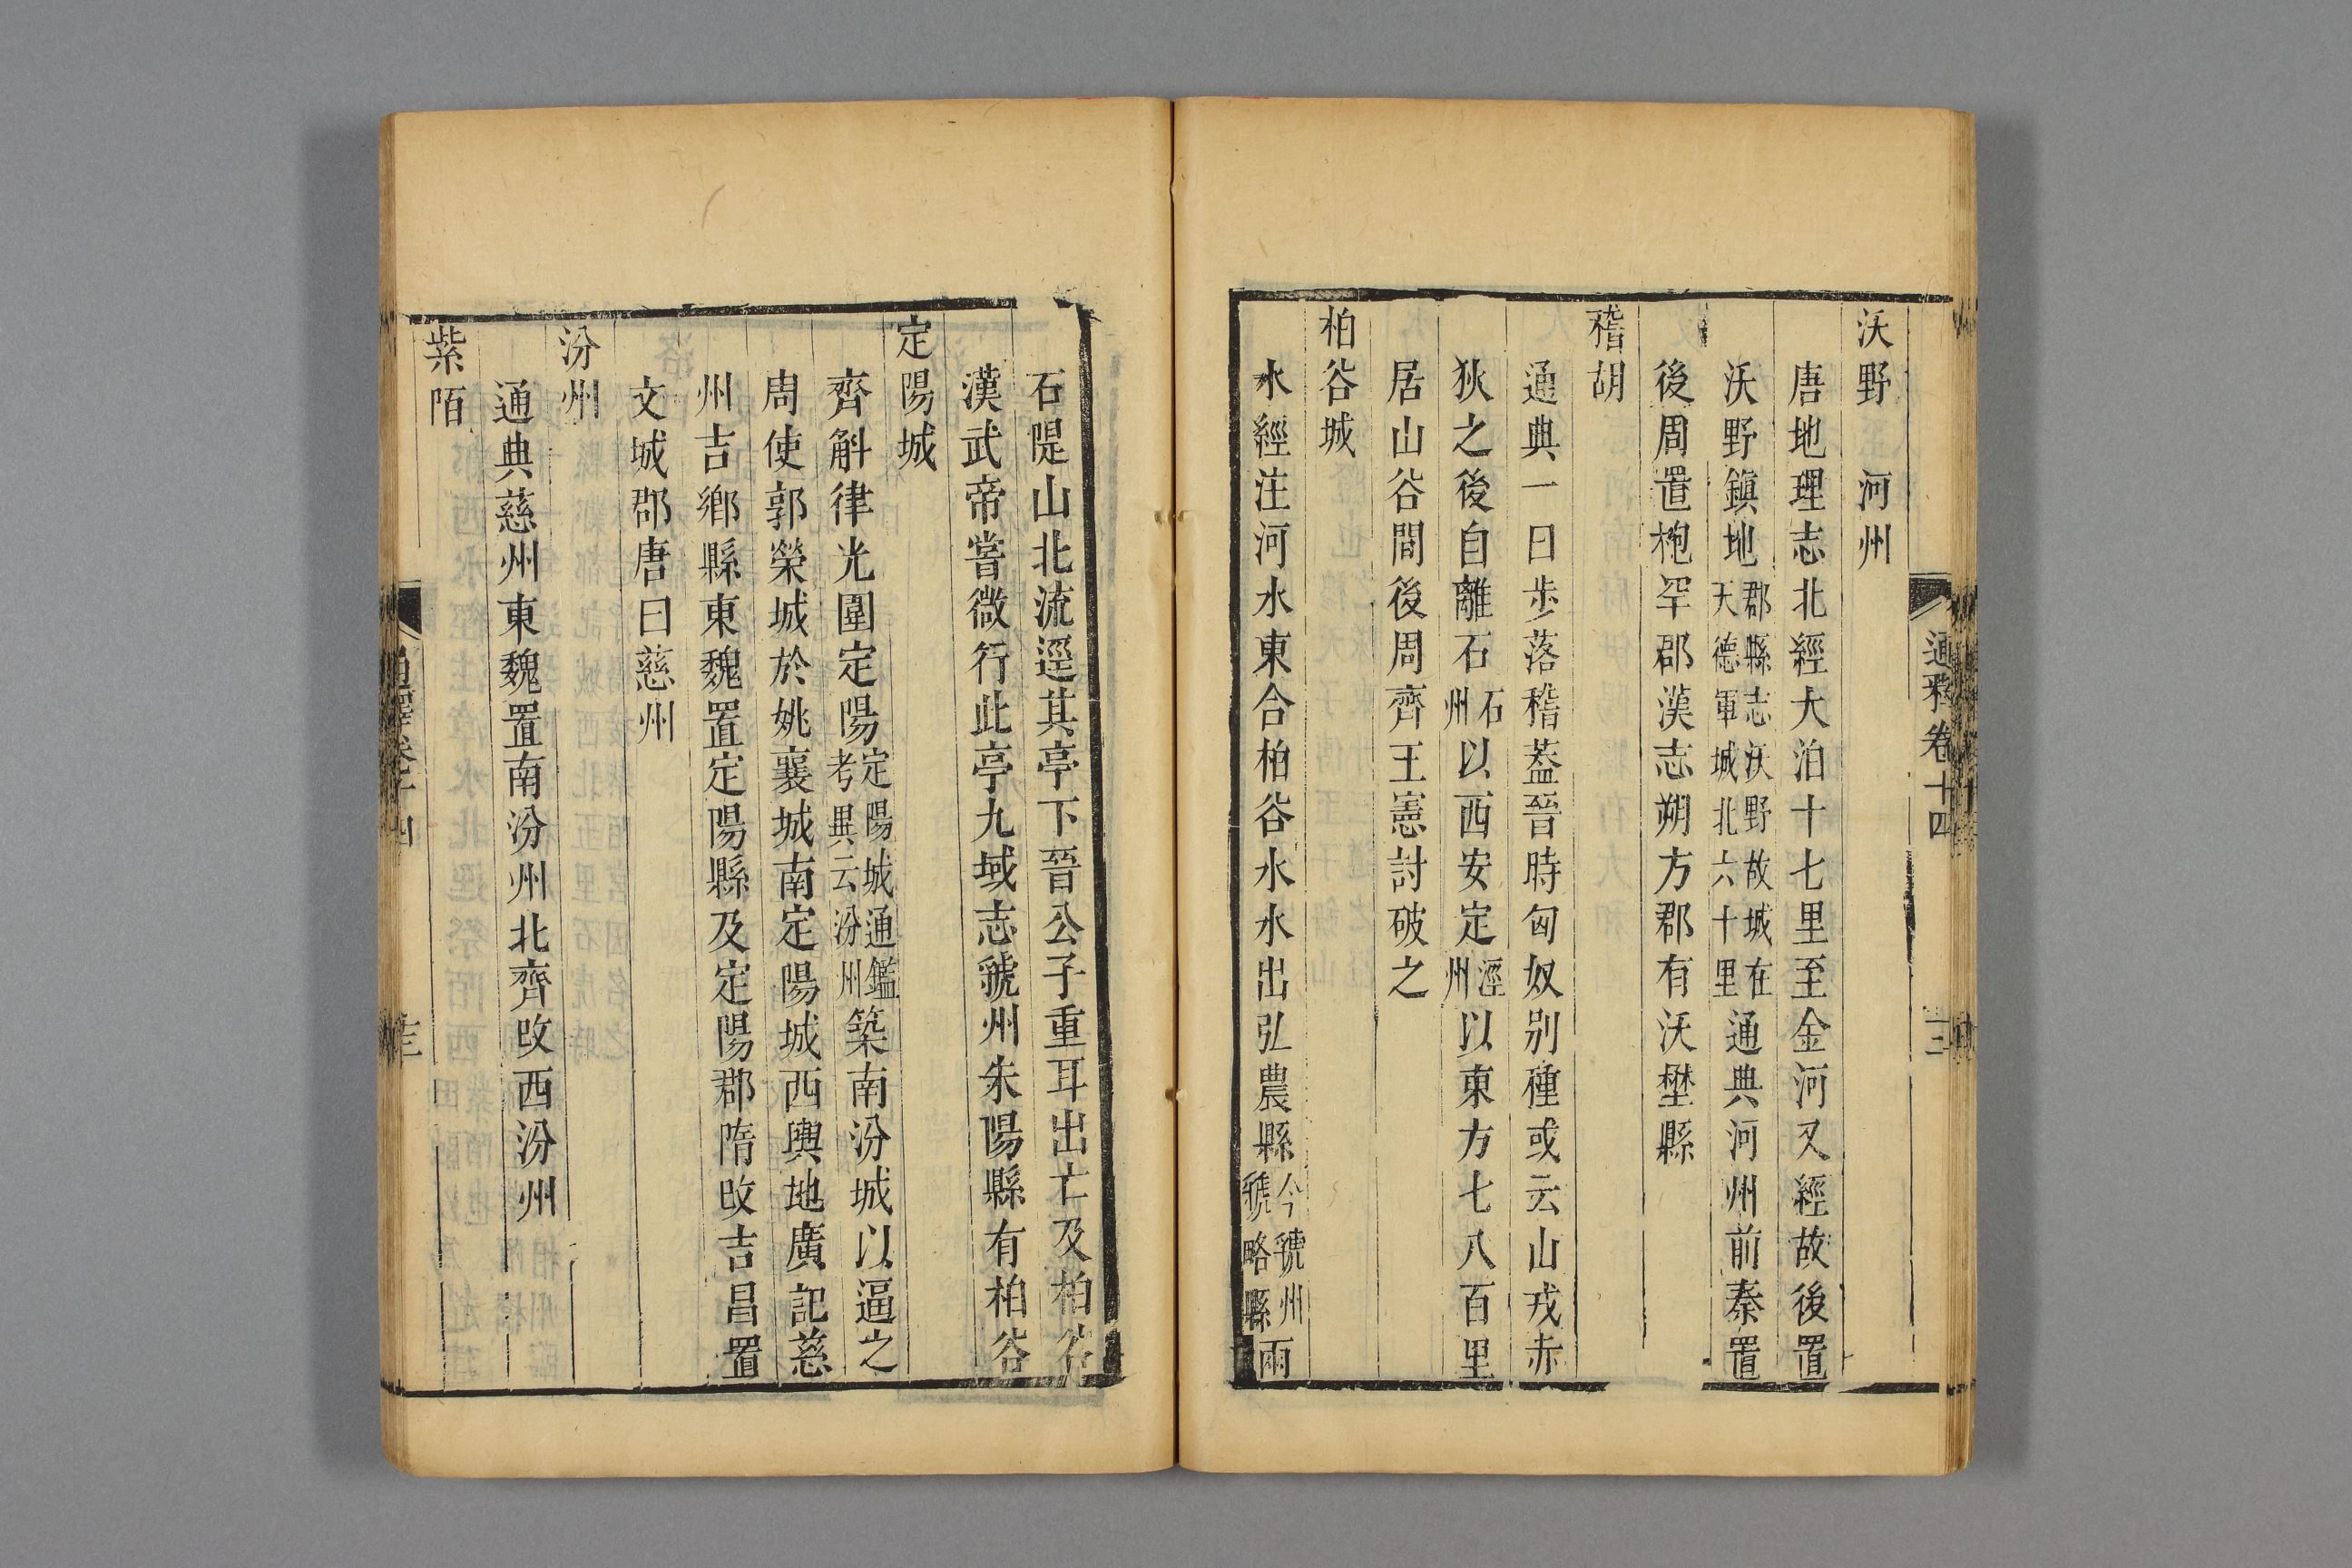 通釋卷十四
沃野 河州
唐地理志北經大泊十七里至金河又經故後置
沃野鎮地郡縣志沃野故城在天德軍城北六十里通典河州前秦置
後周置枹罕郡漢志朔方郡有沃壄縣
稽胡
通典一曰步落稽葢晉時匈奴别種或云山戎赤
狄之後自離石石州以西安定涇州以東方七八百里
居山谷間後周齊王憲討破之
柏谷城
水經注河水東合柏谷水水出弘農縣今虢州虢略縣南
石隄山北流逕其亭下晉公子重耳出亡及柏谷
漢武帝嘗微行此亭九域志虢州朱陽縣有柏谷
定陽城
齊斛律光圍定陽定陽城通鑑考異云汾州築南汾城以逼之
周使郭榮城於姚襄城南定陽城西輿地廣記慈
州吉鄉縣東魏置定陽縣及定陽郡隋改吉昌置
文城郡唐曰慈州
汾州
通典慈州東魏置南汾州北齊改西汾州
紫陌